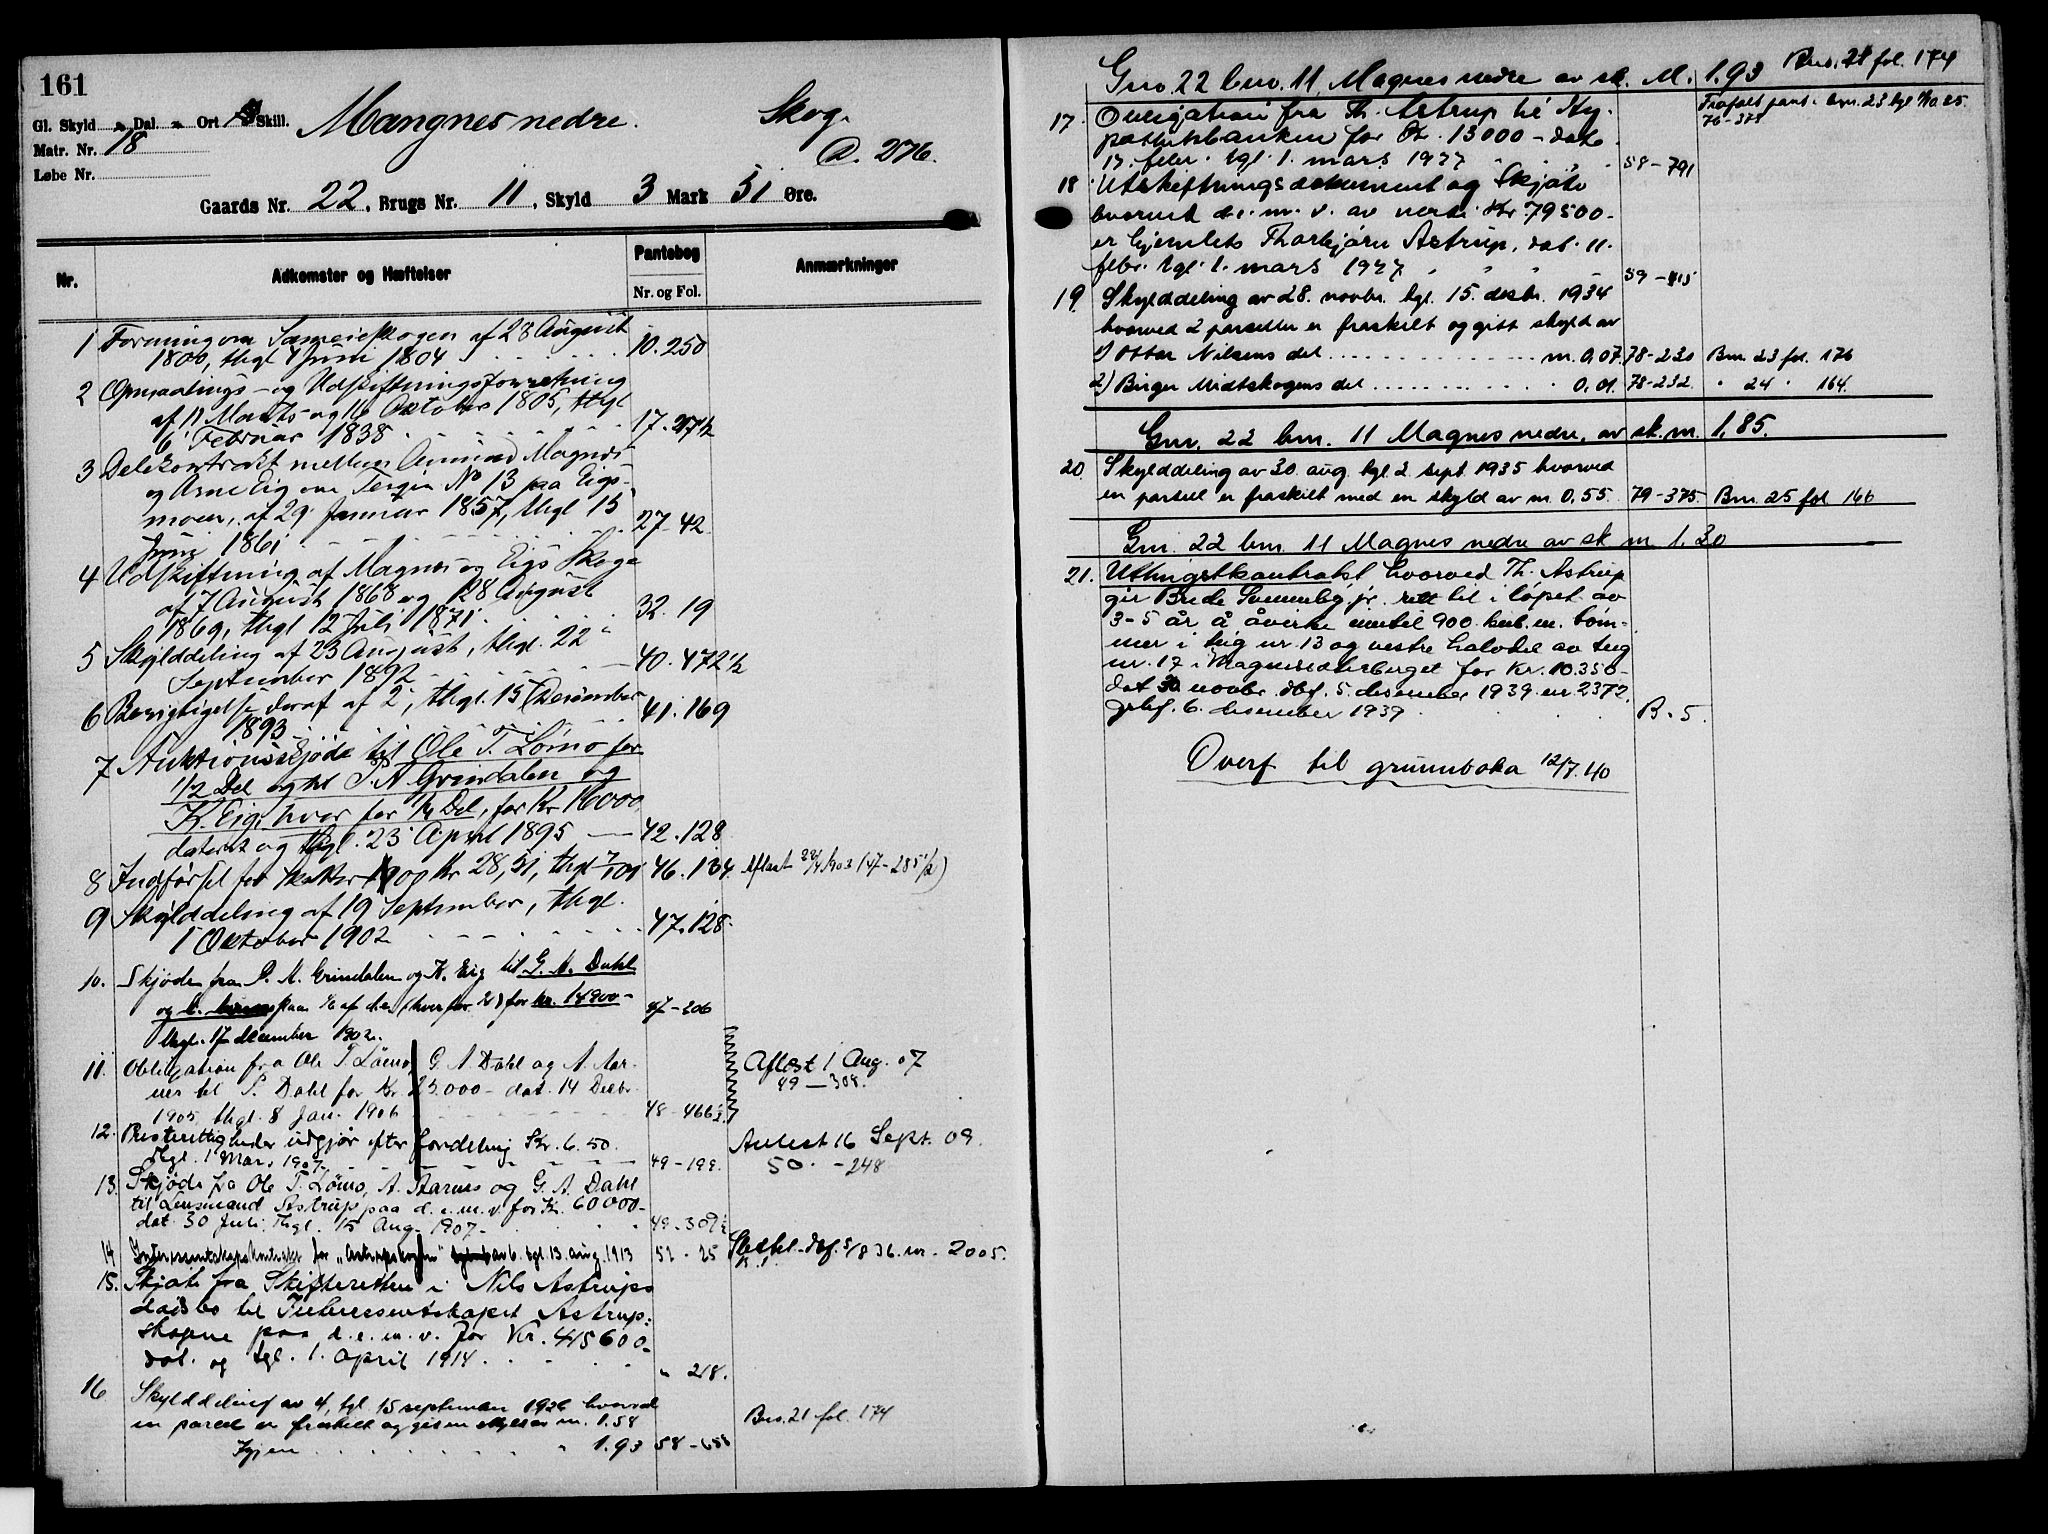 161
Gl. Skyld - Dal. - Ort Skill.
Mangnes nedre.
Skog.
Matr. Nr. 18
a. 276.
Løbe Nr.
Gaards Nr. 22, Brugs Nr. 11, Skyld 3 Mark 51 Øre.
Nr. Adkomster og Hæftelser Pantebog Anmærkninger
Nr. og Fol.
1 Forening om Sameieskogen af 28 August
1800, thgl 4 Juni 1804 10.250
2 Opmaalings- og Udskiftningsforretning
af 12 Marts og 16 Oktober 1805, thgl
6 Februar 1838 17.271/2
3 Delekontrakt mellem Amund Magnes
og Arne Eig om Teigen No 13 paa Eigs-
moen, af 29 Januar 1857, thgl 15
Juni 1861 27-42
4 Udskiftning af Magnes og Eigs Skoge
af 17 August 1868 og 28 August
1869, thgl 12 Juli 1871 32.19
5 Skylddeling af 23 August, thgl. 22
September 1892 40.4721/2
6 Berigtigelse deraf af 2, thgl. 15 December
1893 41.169
7 Auktionsskjøde til Ole T. Lømo for
1/2 Del og til P. A. Grindalen og
K. Eig hver for 1/4 Del, for Kr 16000
dateret og thgl. 23 April 1895 42.128
8 Indførsel for skatter 1900 Kr 28,51, thgl 46.134. Aflæst 22/4 1903 (47-2851/2)
9 Skylddeling af 19 September, thgl.
1 Oktober 1902 47.128
10. Skjøde fra P. A. Grindalen og K. Eig til G. A. Dahl
og paa 1/2 af d.e. (hver for 1/4) for kr. 14900- 47-206
thgl. 17 december 1902.
11. Obligation fra Ole T. Lömo, G. A Dahl og A. Aar-
nes til S. Dahl for Kr 25.000- dat. 14 Decbr. Aflæst 1 Aug. 07
1905 thgl. 8 Jan. 1906 48-4661/2 49-308.
12. Bruksrettigheder udgjør efter fordeling Kr. 6.50. Avlæst 16 Sept. 09.
thgl. 1 Mars 1907 49-199. 50.-248
13. Skjøde fra Ole T. Lömo, A. Aarnes og G. A. Dahl
til Lensmand Astrup paa d.e.m.v. for Kr. 60000-
dat. 30 Juli, Thgl. 15 Aug 1907- 49-3091/2
14 Interessentskapskontrakt for "Astrupskogene" av 6. tgl. 13. aug. 1913 52-25 Slettet-dbf. 5/8 36. nr. 2005.
K.1.
15. Skjøte fra Skifteretten i Nils Astrups
dødsbo til Interessentskapet Astrup-
skogene paa d.e.m.v. for Kr. 415600-
dat. og tgl. 1. april 1914. " 218.
16 Skylddeling av 4, tgl. 15 september 1926 hvorved
en parcel er fraskilt og gis en skyld av m. 1.58 Bno. 21 fol. 174
Igjen 1.93 58-658
Gno. 22 bno. 11, Magnes nedre av sk. M. 1.93 Bno. 21 fol. 174
17. Obligation fra Th. Astrup til Hy- Frafalt pant i bnr. 23 tgl 25.
potekbanken for Kr. 13000- dat. 76-371
17. febr. tgl. 1. mars 1927 58-791
18 Utskiftningsdokument og Skjøte
hvorved d.e.m.v. av verdi Kr. 79500-
er hjemlets Thorbjørn Astrup, dat. 11.
febr. tgl. 1. mars 1927 59-415
19. Skylddeling av 28. novbr. tgl. 15. desbr. 1934
hvorved 2 parseller er fraskilt og gitt skyld av
1) Ottar Nilsens del m. 0,07. 78-230 Bnr. 23 fol. 176
2) Birger Midtskogens del " 0,01. 78-232 " 24 " 164.
Gnr. 22 bnr. 11 Magnes nedre, av sk. m. 1.85.
20 Skylddeling av 30. aug. tgl. 2. sept. 1935 hvorved
en parsell er fraskilt med en skyld av m. 0.55. 79-375. Bnr. 25 fol 166
Gnr. 22 bnr. 11 Magnes nedre av sk m 1.30
21. Uthugstkontrakt hvorved Th. Astrup
gir Brede jr. rett til i løpet av
3-5 år å åvirke inntil 900 kub. m. töm-
mer i teig nr. 13 og vestre halvdel av teig
nr. 17 i Magnessæterberget for Kr. 10.350-
dat 30. novbr. dbf. 5. desember 1939 nr 2372.
gebf. 6. desember 1939 B.5.
Overf til grunnboka 12/7.40